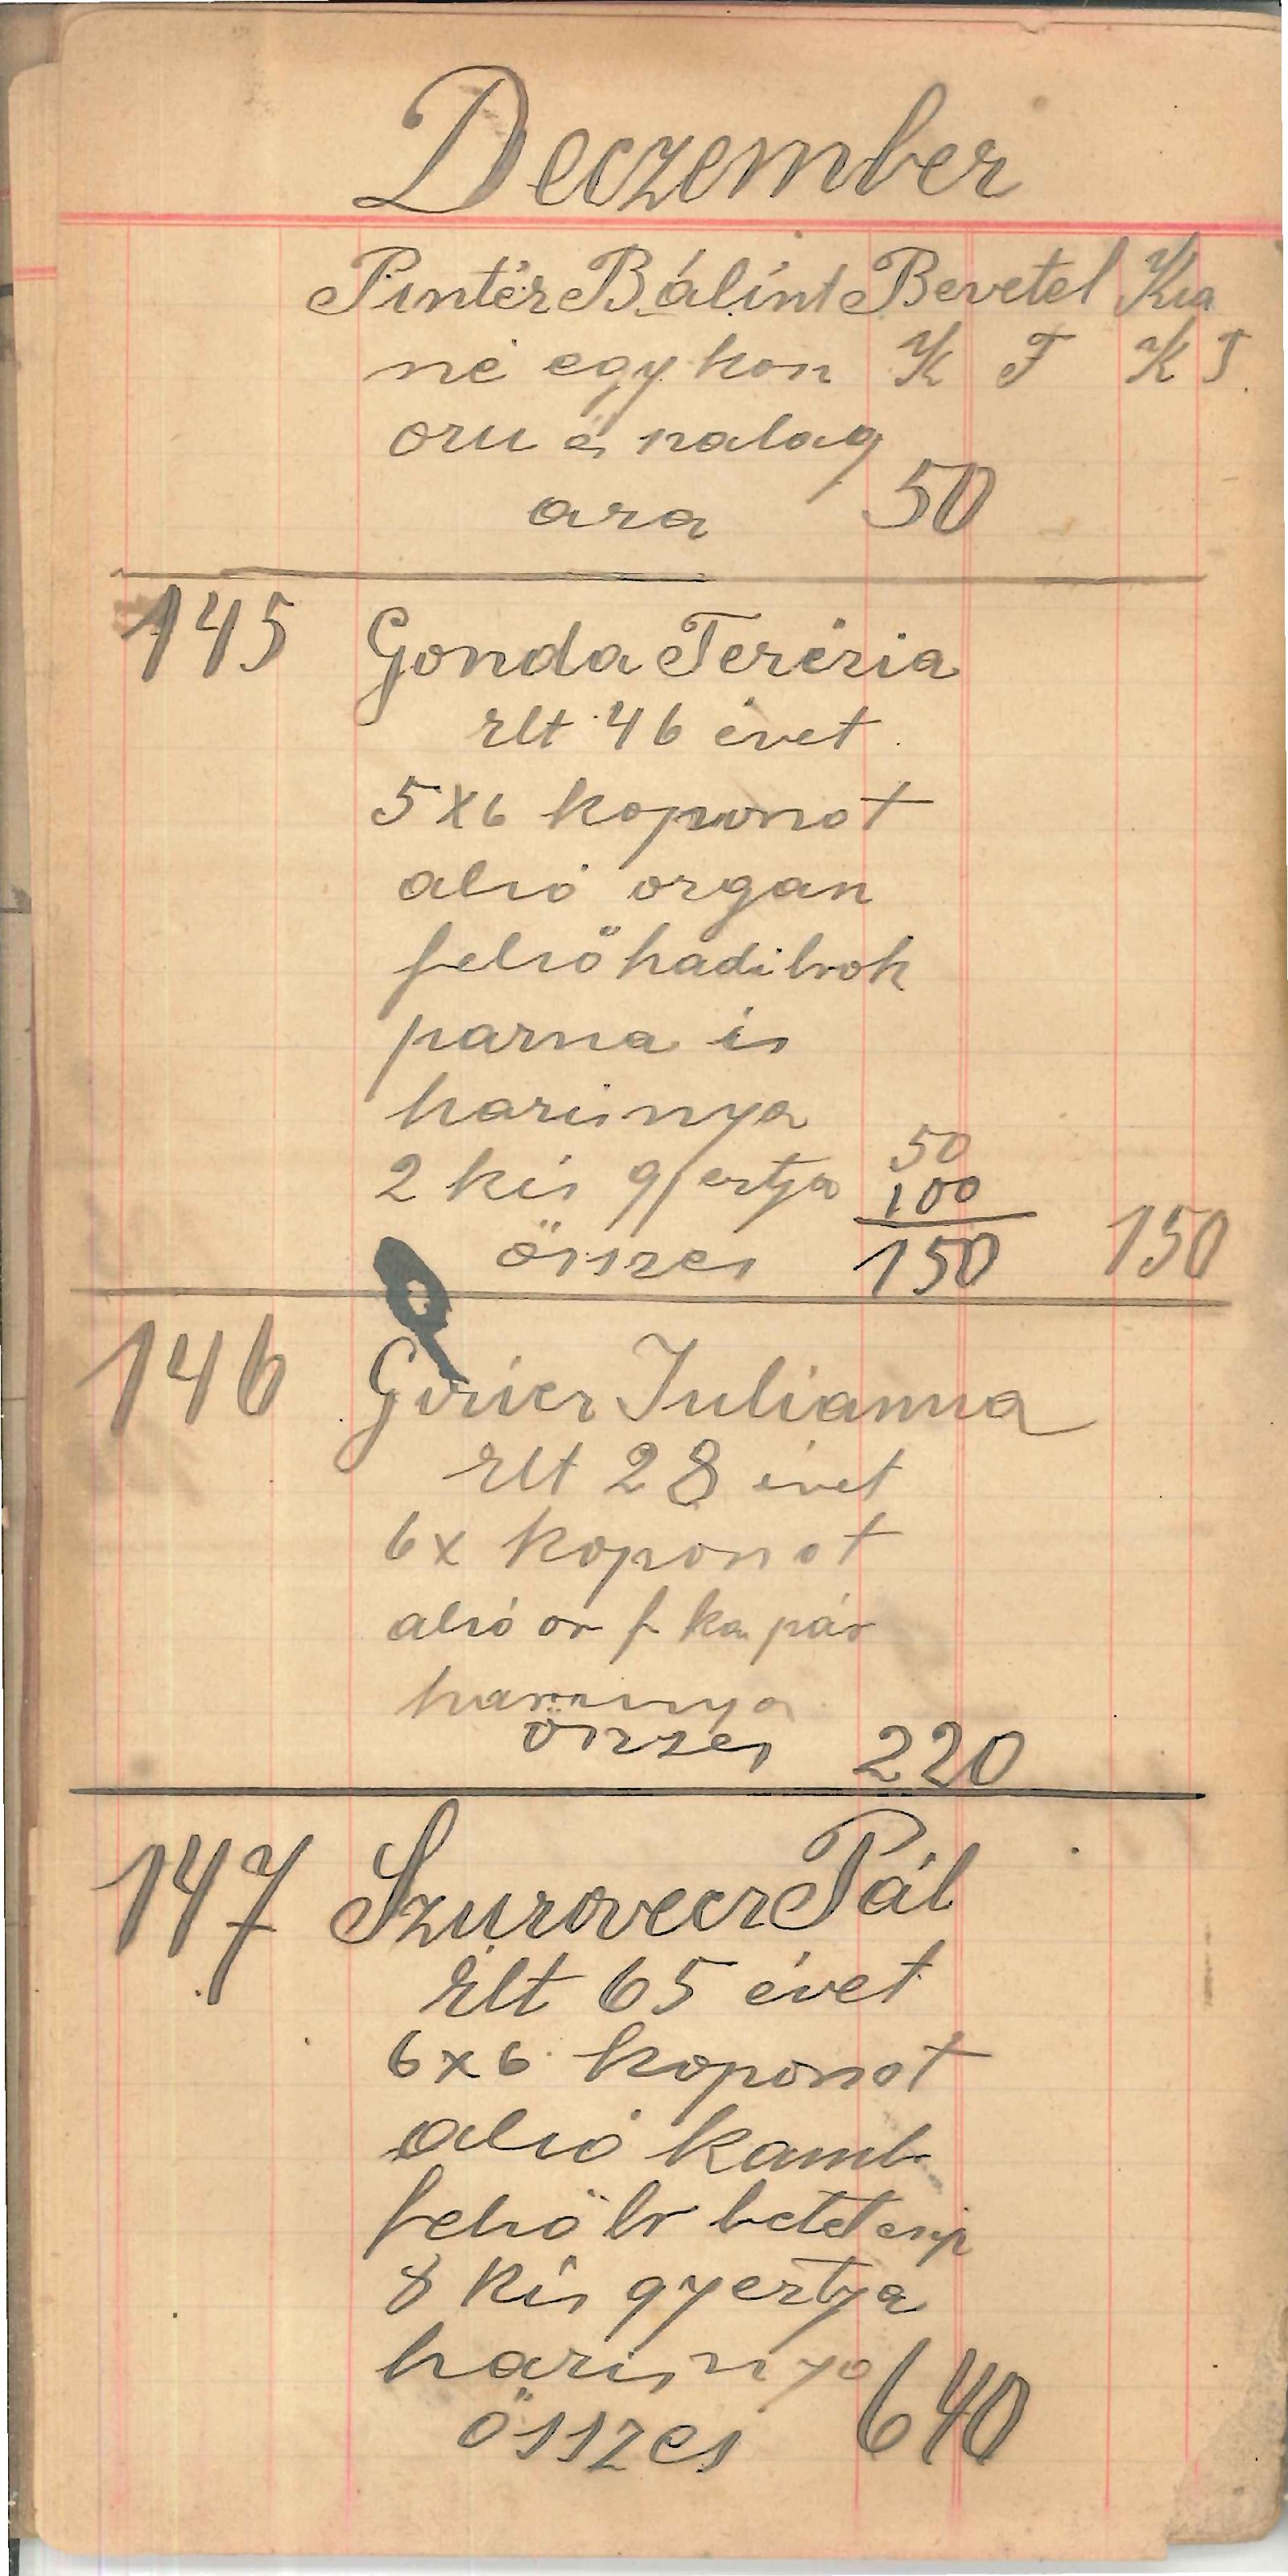 Deczember
Pintér Bálint Bevetel Kia
né egy kosz K F K F
oru és szalag
ara 50
145 Gonda Terézia
élt 46 évet
5x6 koporsot
alsó organ
felső hadi brok
parna és
harisnya 50
2 kis gyertya 100
összes 150 150
146 Julianna
élt 28 évet
6x koporsot
alsó or f ka pár
harisnya
összes 220
147 Szurovecz Pál
élt 65 évet
6x6 koporsot
alsó kamb
felső br betét csip
8 kis gyertya
harisnya
összes 640